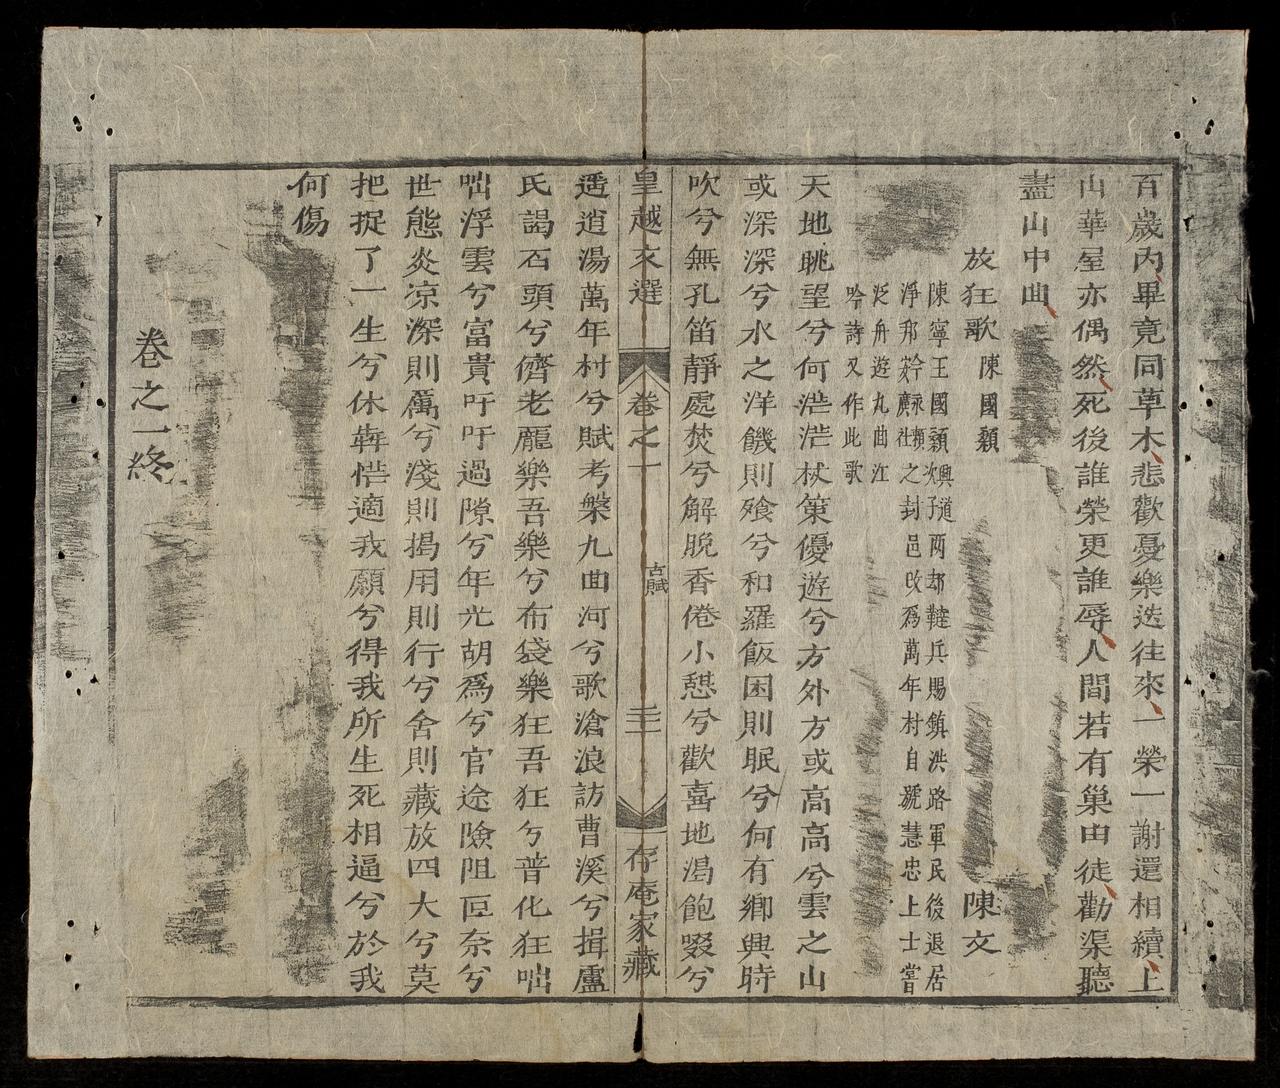 百歲内畢竟同草木悲歡憂樂迭往來一榮一謝還相續上
山華屋亦偶然死後誰榮更誰辱人間若有巢由徒勸渠聽
盡山中曲
放狂歌 陳國顙 陳文
陳寧王國顙興道次子两却韃兵賜鎮洪路軍民後退居
淨邦之封邑改爲萬年村自號慧忠上士嘗
泛舟遊九曲江
吟詩又作此歌
天地眺望兮何茫茫杖策優遊兮方外方或高高兮雲之山
或深深兮水之洋饑則飡兮和羅飯困則眠兮何有鄉興時
吹兮無孔笛靜處焚兮解脫香倦小憩兮歡喜地渴飽啜兮
皇越文選 卷之一 古賦 三二 存庵家藏
逍遥湯萬年村兮賦考槃九曲河兮歌滄浪訪曹溪兮揖盧
氏謁石頭兮儕老龐樂吾樂兮布袋樂狂吾狂兮普化狂咄
咄浮雲兮富貴吁吁過隙兮年光胡爲兮官途險阻叵奈兮
世態炎凉深則厲兮淺則揭用則行兮舍則藏放四大兮莫
把捉了一生兮休犇忙適我願兮得我所生死相逼兮於我
何傷
卷之一終